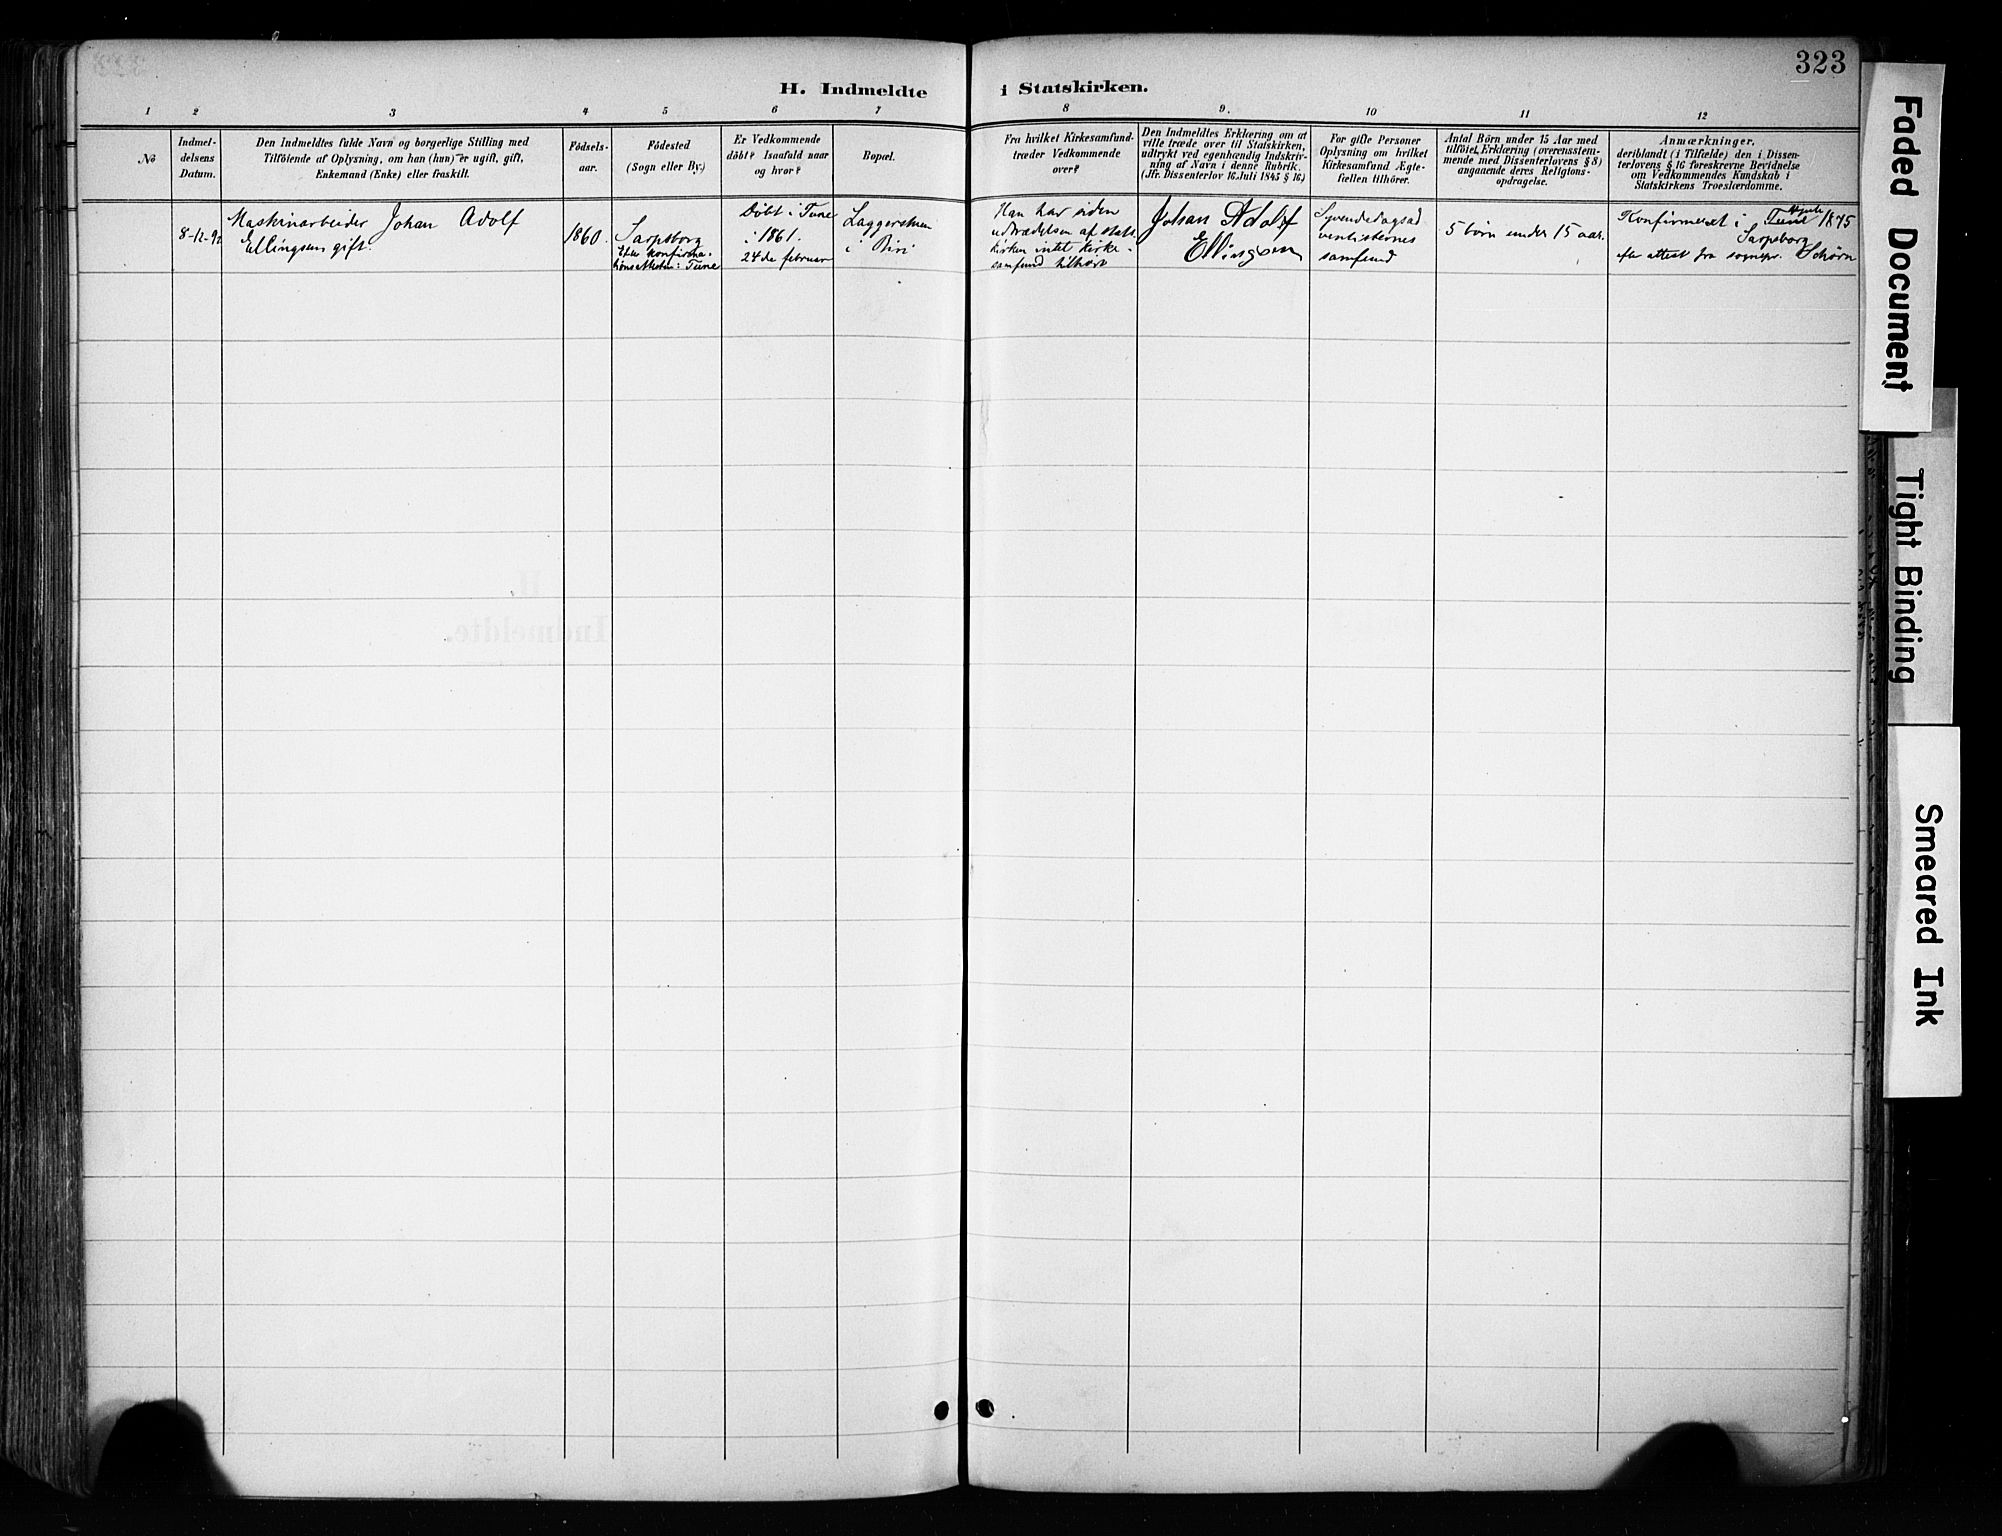 323
H. Indmeldte i Statskirken.
1 2 3 4 5 6 7 8 9. 10 11 12
No
Indmel-
delsens
Datum.
Den Indmeldtes fulde Navn og borgerlige Stilling med
Tilföiende af Oplysning, om han (hun) er ugift, gift,
Enkemand (Enke) eller fraskilt.
Födsels-
aar.
Födested
(Sogn eller By.)
Er Vedkommende
döbt? Isaafald naar
og hvor?
Bopæl.
Fra hvilket Kirkesamfund-
træder Vedkommende
over?
Den Indmeldtes Erklæring om at
ville træde over til Statskirken,
udtrykt ved egenhændig Indskriv-
ning af Navn i denne Rubrik.
(Jfr. Dissenterlov 16 Juli 1845 § 16)
For gifte Personer
Oplysning om hvilket
Kirkesamfund Ægte-
fællen tilhörer.
Antal Börn under 15 Aar med
tilföiet Erklæring (overensstem-
mende med Dissenterlovens § 8)
angaaende deres Religions-
opdragelse.
Anmærkninger,
deriblandt (i Tilfælde) den i Dissen-
terlovens § 16 foreskrevne Bevidnelse
om Vedkommendes Kundskab i
Statskirkens Troeslærdomme.
8-12-92
Maskinarbeider Johan Adolf
Ellingsen gift.
1860.
Sarpsborg
Efter konfirma-
tionsattesten: Tune
Döbt i Tune
i 1861.
24de februar
i Biri
Han har siden
udtrædelsen af stats
kirken intet kirke-
samfund tilhört
Johan Adolf
Ellingsen
Syvendedagsad
ventisternes
samfund
5 börn under 15 aar.
Konfirmeret i Tune 1875
Sarpsborg
efter attest fra sognepr. Schörn
H.
Indmeldte.
Faded Document
Tight Binding
Smeared Ink